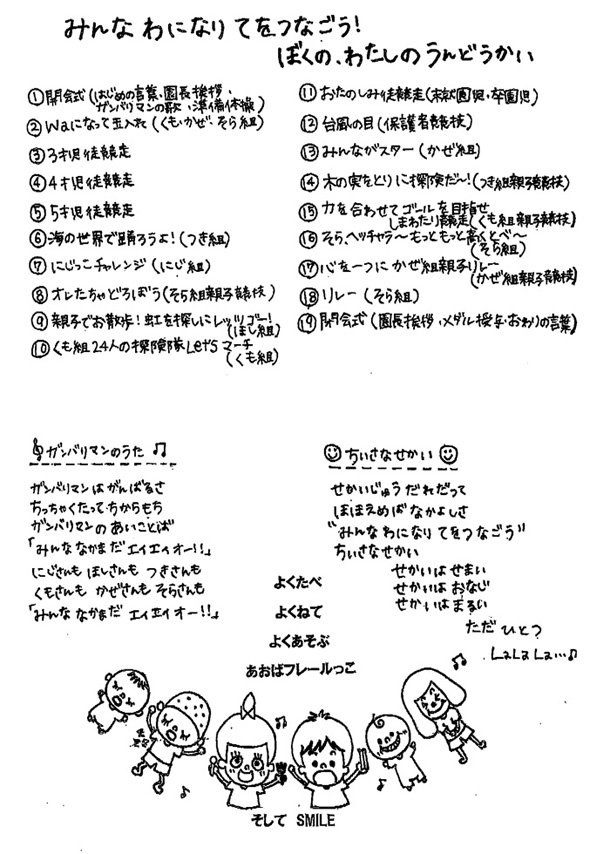 みんな わになり てをつなごう!
ぼくの、わたしの うんどうかい
① 開会式 (はじめの言葉・園長挨拶・
ガンバリマンの歌・準備体操)
② Waになって玉入れ (くも・かぜ・そら組)
③ 3才児徒競走
④ 4才児徒競走
⑤ 5才児徒競走
⑥ 海の世界で踊ろうよ! (つき組)
⑦ にじっこチャレンジ (にじ組)
⑧ オレたちゃどろぼう (そら組親子競技)
⑨ 親子でお散歩! 虹を探しにレッツゴー!
(ほし組)
⑩ くも組24人の探険隊 Let's マーチ
(くも組)
⑪ おたのしみ徒競走 (未就園児・卒園児)
⑫ 台風の目 (保護者競技)
⑬ みんながスター (かぜ組)
⑭ 木の実をとりに探険だ〜! (つき組親子競技)
⑮ 力を合わせてゴールを目指せ
しまわたり競走 (くも組親子競技)
⑯ そら、ヘッチャラ〜もっともっと高くとべ〜
(そら組)
⑰ 心を一つに かぜ組親子リレー
(かぜ組親子競技)
⑱ リレー (そら組)
⑲ 閉会式 (園長挨拶・メダル授与・おわりの言葉)
ガンバリマンのうた
ガンバリマンは がんばるさ
ちっちゃくたって ちからもち
ガンバリマンの あいことば
「みんな なかまだ エイエイオー!!」
にじさんも ほしさんも つきさんも
くもさんも かぜさんも そらさんも
「みんな なかまだ エイエイオー!!」
ちいさなせかい
せかいじゅう だれだって
ほほえめば なかよしさ
"みんな わになり てをつなごう"
ちいさなせかい
せかいは せまい
せかいは おなじ
せかいは まるい
ただ ひとつ
LaLaLa…♪
よくたべ
よくねて
よくあそぶ
あおばフレールっこ
そして SMILE